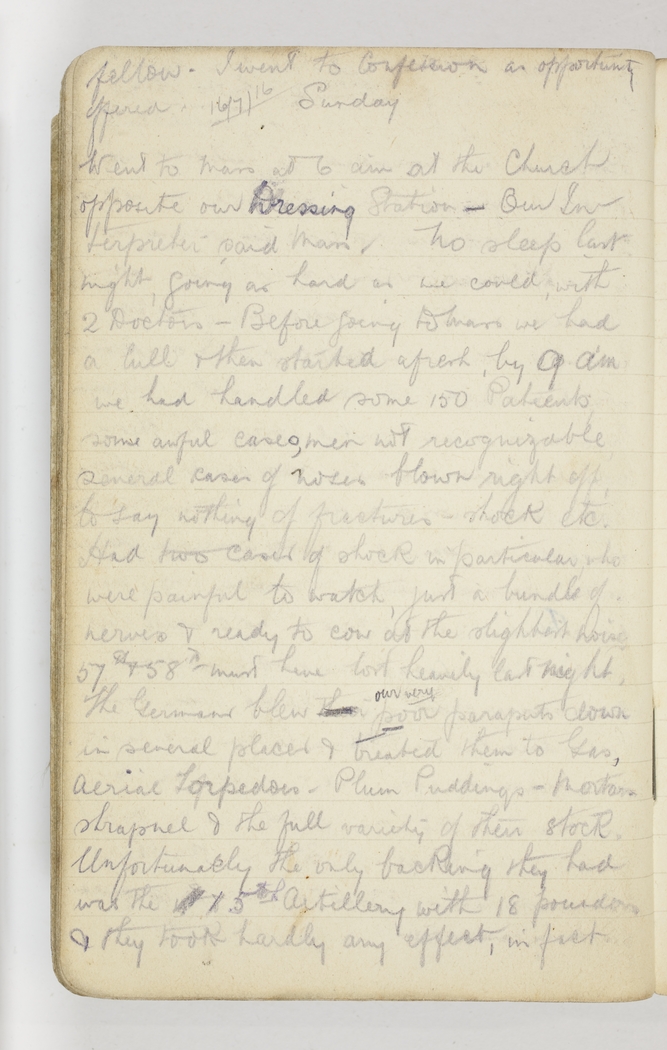 fellow. I went to Confession as opportunity
offered. 16/7/16 Sunday
Went to Mass at 6 am at the Church
opposite our Dressing Station - Our In-
terpreter said Mass. No sleep last
night, going as hard as we could, with
2 Doctors - Before going to Mass we had
a lull & then started afresh, by 9 am
we had handled some 150 Patients,
some awful cases, men not recognizable
several cases of noses blown right off
to say nothing of fractures - shock etc.
Had two cases of shock in particular, who
were painful to watch, just a bundle of
nerves & ready to cow at the slightest noise
57th & 58th must have lost heavily last night.
The Germans blew our very poor parapets down
in several places & treated them to Gas,
Aerial Torpedoes - Plum Puddings - Mortars
shrapnel & the full variety of their stock.
Unfortunately the only backing they had
was the 15th Artillery with 18 pounders
& they took hardly any effect, in fact